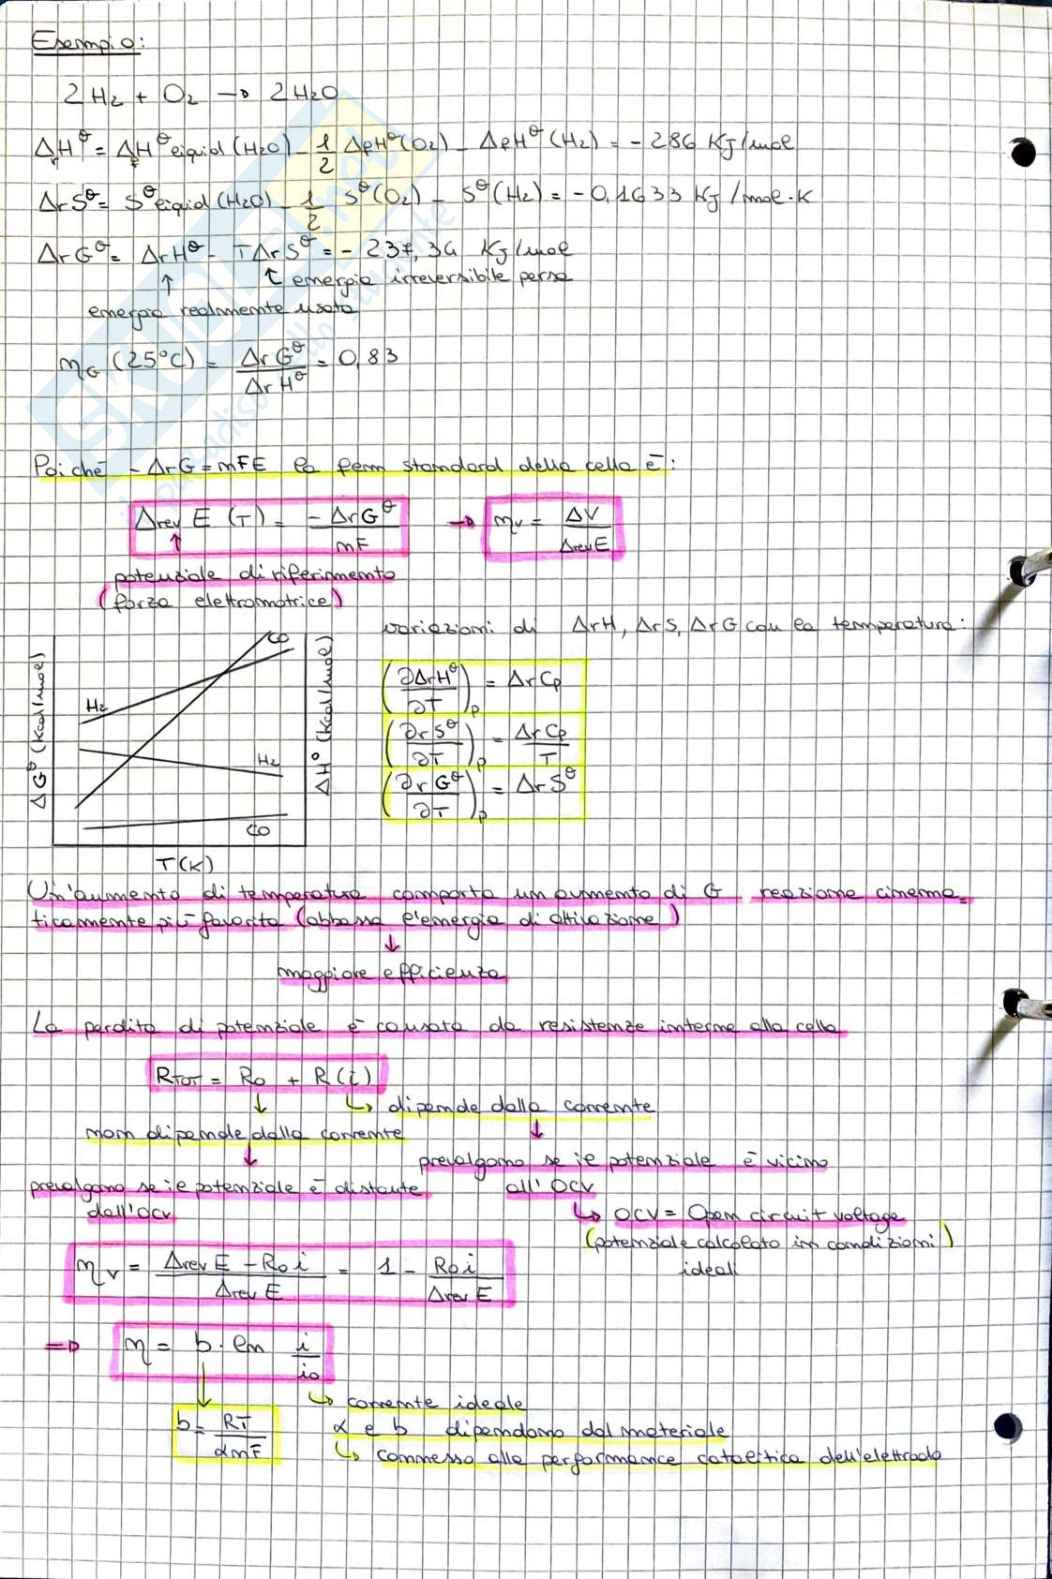 Esempio:
2H₂ + O₂ → 2H₂O
ΔrH⁰ = ΔfH⁰ liquid (H₂O) - 1/2 ΔfH⁰ (O₂) - ΔfH⁰ (H₂) = - 286 KJ/mol
ΔrS⁰ = S⁰ liquid (H₂O) - 1/2 S⁰ (O₂) - S⁰ (H₂) = - 0,1633 KJ/mol·K
ΔrG⁰ = ΔrH⁰ - TΔrS⁰ = - 237,34 KJ/mol
↑ ↑ energia irreversibile persa
energia realmente usata
ηG (25°C) = ΔrG⁰/ΔrH⁰ = 0,83
Poiché - ΔrG = nFE la fem standard della cella è:
Δrev E (T) = -ΔrG⁰/nF → ηv = ΔV/ΔrevE
potenziale di riferimento
(forza elettromotrice)
variazioni di ΔrH, ΔrS, ΔrG con la temperatura:
ΔG⁰ (Kcal/mol)
CO
H₂
H₂
CO
ΔH⁰ (Kcal/mol)
T(K)
(∂ΔrH⁰/∂T)p = ΔrCp
(∂rS⁰/∂T)p = ΔrCp/T
(∂rG⁰/∂T)p = ΔrS⁰
Un'aumento di temperatura comporta un aumento di G reazione cinema-
ticamente più favorita (abbassa l'energia di attivazione)
↓
maggiore efficienza
La perdita di potenziale è causata da resistenze interne alla cella
RTOT = R₀ + R(i)
↓ ↳ dipende dalla corrente
non dipende dalla corrente ↓
↓ prevalgono se il potenziale è vicino
prevalgono se il potenziale è distante all'OCV
dall'OCV ↳ OCV = Open circuit voltage
(potenziale calcolato in condizioni)
ideali
ηv = Δrev E - R₀i/Δrev E = 1 - R₀i/Δrev E
⇒ η = b · ln i/i₀
↓ ↳ corrente ideale
b = RT/αnF α e b dipendono dal materiale
↳ connesso alla performance catalitica dell'elettrodo